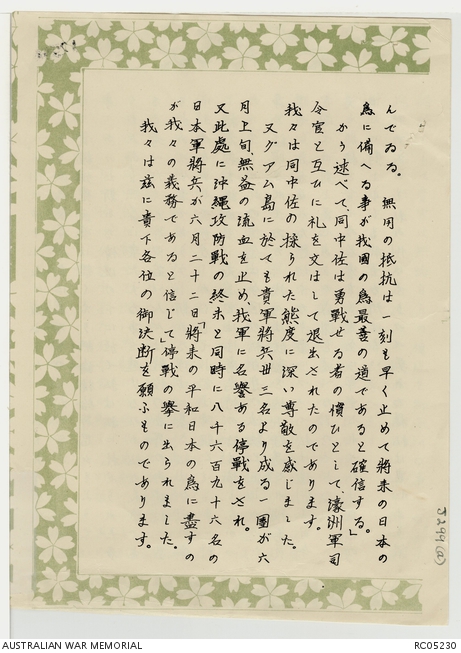 んでゐる。　無用の抵抗は一刻も早く止めて將来の日本の
為に備へる事が我國の為最善の道であると確信する。」
　かう述べて、同中佐は勇戰せる者の慣ひとして、濠洲軍司
令官と互ひに礼を交はして退出されたのであります。
我々は同中佐の採られた態度に深い尊敬を感じました。
　又グアム島に於ても貴軍將兵卅三名より成る一團が六
月上旬、無益の流血を止め、我軍に名譽ある停戰をされ、
又此處に沖縄攻防戰の終末と同時に八千六百九十六名の
日本軍將兵が六月二十二日「將来の平和日本の為に盡すの
が我々の義務であると信じて」停戰の擧に出られました。
　我々は茲に貴下各位の御決断を願ふものであります。
J299(a)
AUSTRALIAN WAR MEMORIAL
RC05230